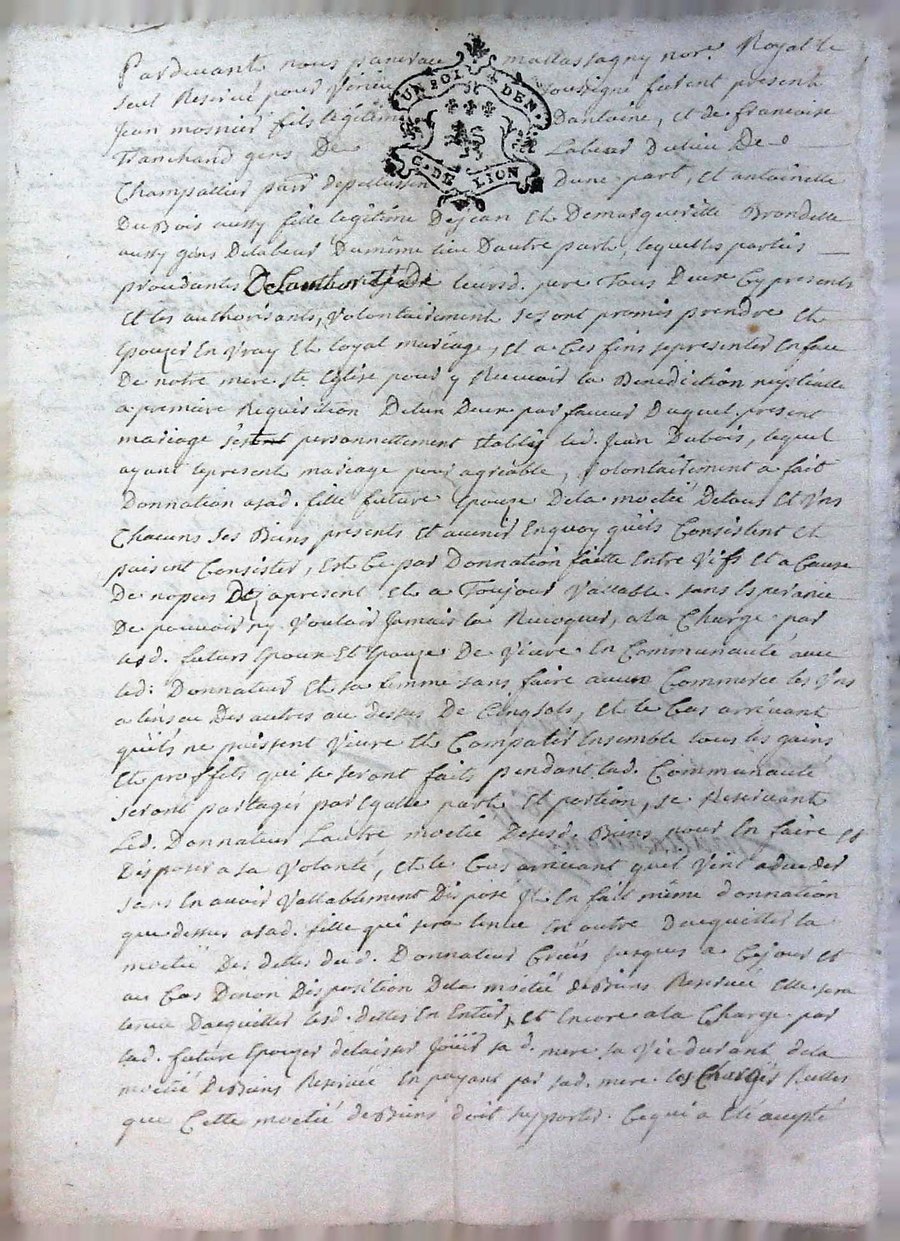 Pardevant nous nore Royal le
soul Reservé pour soussigné furent present
UN SOL 4 DEN.
G. DE LION
Jean mosnier fils légitime Dantoine, et de francoise
Planchand gens De Labeur Dulieu De
Champallier parr depelussin Dune part, Et antoinette
DuBois aussy fille legitime Dejean Et Demargueritte Brondelle
aussy gens Delabeur Dumême lieu Dautre part, lequelles partis
proudantes De Lauthorité de leursd. pere Tous Deux Cy presents
Et les authorisants, Volontairement se sont promis prendre Et
Epouzer En Vray Et loyal mariage, Et a Ces fins se presenter En face
De notre mere ste Eglise pour y Recevoir la Benediction nuptialle
a premiere Requisition De lun Deux par faveur Duquel present
mariage s'est personnellement Etably led. Jean Dubois, lequel
ayant le present mariage pour agréable, Volontairement a fait
Donnation a sad. fille future Epouze De la moetié De tous Et Uns
Chacuns ses Biens presents Et avenir En quoy qu'ils Consistent Et
puissent Consister, Et Ce par Donnation faitte Entre Vifs Et a Cause
De nopces Dez apresent Et a Toujour Vallable sans Esperance
De pouvoir ny Vouloir Jamais la Revoquer, a la Charge par
lesd. futurs Epoux Et Epouze De Vivre En Communauté avec
led: Donnateur Et sa femme sans faire aucun Commerce les Uns
a linsçu Des autres au dessus De Cinq sols, Et le Cas arrivant
qu'ils ne puissent Vivre Et Compatir Ensemble tous les gains
Et proffits qui se seront faits pendant lad. Communauté
seront partagés par Egalle part Et portion, se Reservant
Led. Donnateur Lautre moetié Desesd. Biens pour En faire Et
Disposer a sa Volonté, Et le Cas arrivant quil Vint a deceder
sans En avoir Vallablement Disposé Jl En fait même donnation
que dessus a sad. fille qui sera tenue En outre Dacquitter la
moetié Des dettes dud. Donnateur Créés jusques a Cejour Et
au Cas De non Disposition De la moetié de Biens Reservée Elle sera
tenue Dacquitter lesd. dettes En Entier, Et Encore a la Charge par
lad. future Epouze de laisser Joüir sad. mere sa Vie durant de la
moetié De Biens Reservée En payant par sad. mere les Charges Reelles
que Cette moetié de Biens doit supporter. Ce qui a Eté accepté